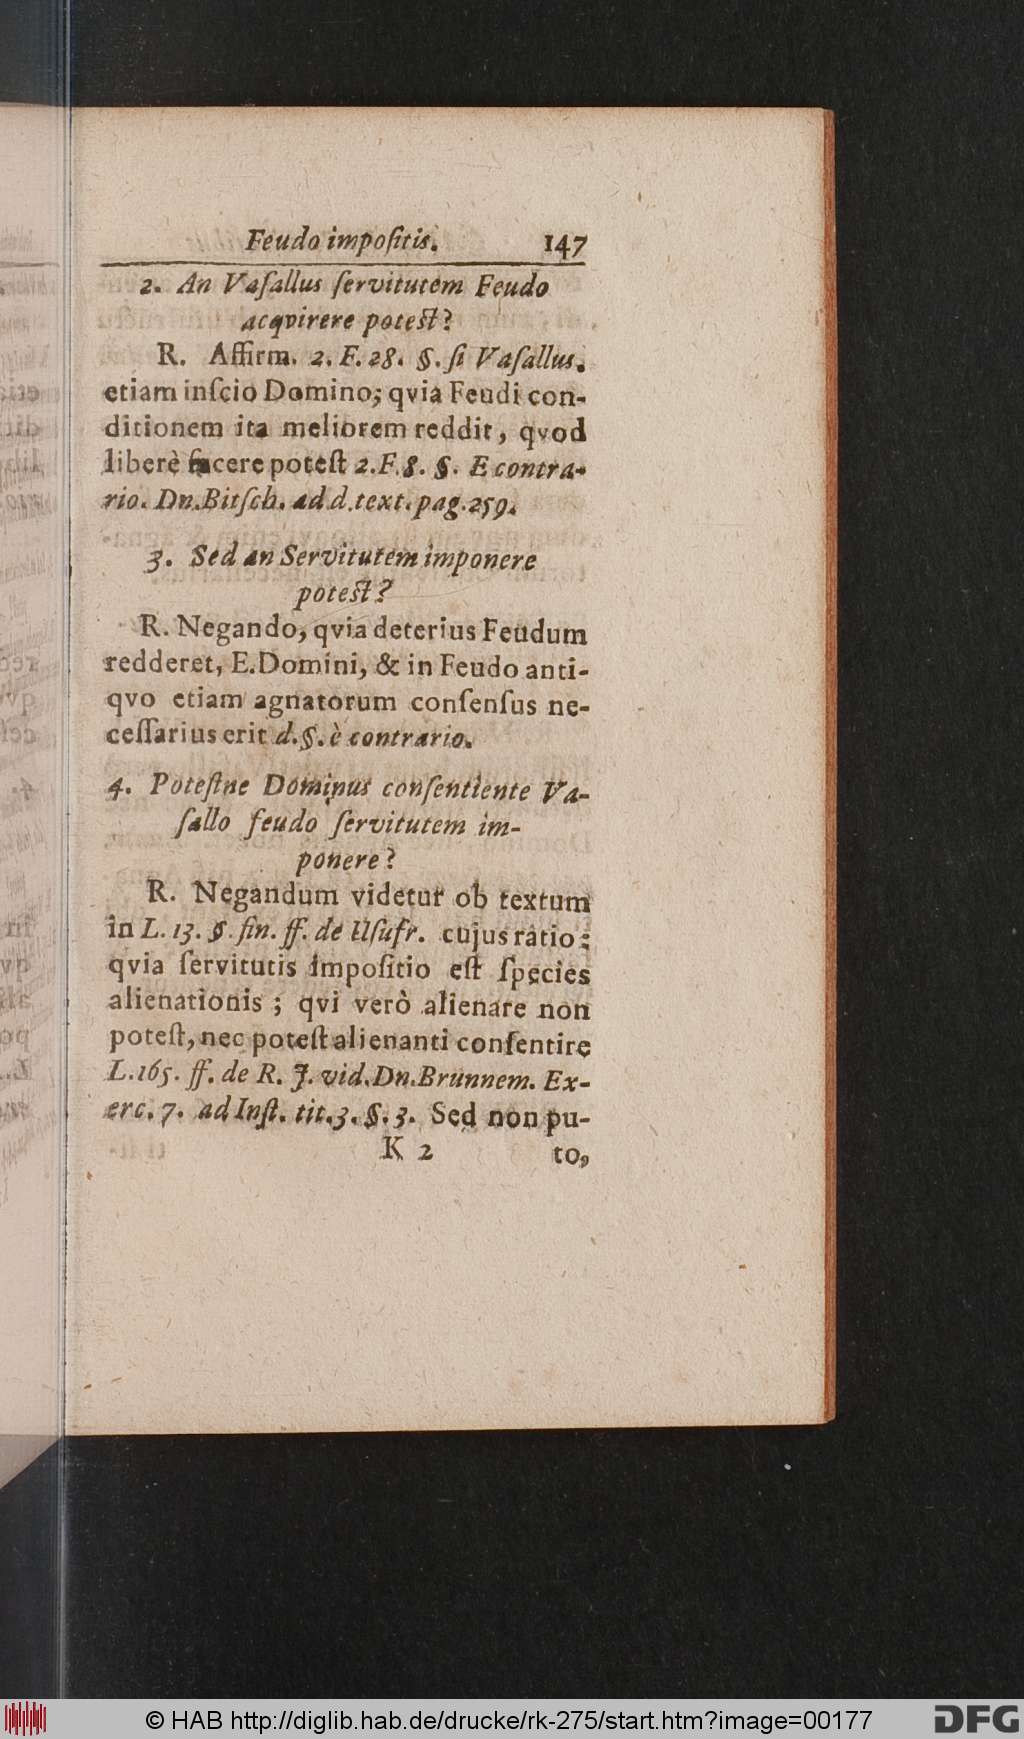 Feudo impoſitis. 147
2. An Vaſallus ſervitutem Feudo
acqvirere poteſt?
R. Affirm. 2. F. 28. §. ſi Vaſallus.
etiam inſcio Domino; qvia Feudi con-
ditionem ita meliorem reddit, qvod
liberè facere poteſt 2. F. 8. §. E contra-
rio. Dn. Bitſch. ad d. text. pag. 259.
3. Sed an Servitutem imponere
poteſt?
R. Negando, qvia deterius Feudum
redderet, E. Domini, & in Feudo anti-
qvo etiam agnatorum conſenſus ne-
ceſſarius erit d. §. è contrario.
4. Poteſtne Dominus conſentiente Va-
ſallo feudo ſervitutem im-
ponere?
R. Negandum videtur ob textum
in L. 13. §. fin. ff. de Uſufr. cujus ratio:
qvia ſervitutis impoſitio eſt ſpecies
alienationis; qvi verò alienare non
poteſt, nec poteſt alienanti conſentire
L. 165. ff. de R. J. vid. Dn. Brunnem. Ex-
erc. 7. ad Inſt. tit. 3. §. 3. Sed non pu-
K 2 to,
© HAB http://diglib.hab.de/drucke/rk-275/start.htm?image=00177
DFG